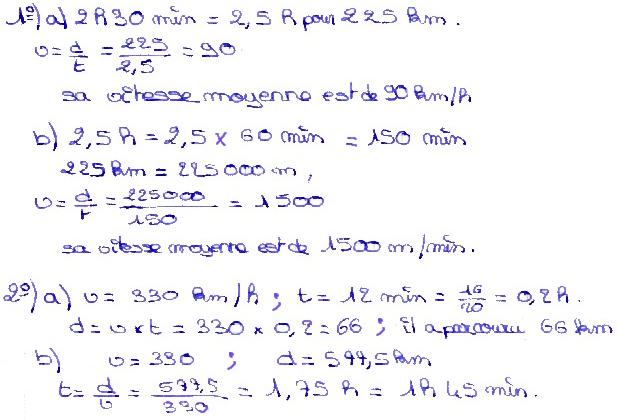 1º) a) 2 h 30 min = 2,5 h pour 225 km.
v = d/t = 225/2,5 = 90
sa vitesse moyenne est de 90 km/h
b) 2,5 h = 2,5 × 60 min = 150 min
225 km = 225 000 m,
v = d/t = 225000/150 = 1500
sa vitesse moyenne est de 1500 m/min.
2º) a) v = 330 km/h ; t = 12 min = 12/60 = 0,2 h.
d = v × t = 330 × 0,2 = 66 ; il a parcouru 66 km
b) v = 330 ; d = 577,5 km
t = d/v = 577,5/330 = 1,75 h = 1h 45 min.